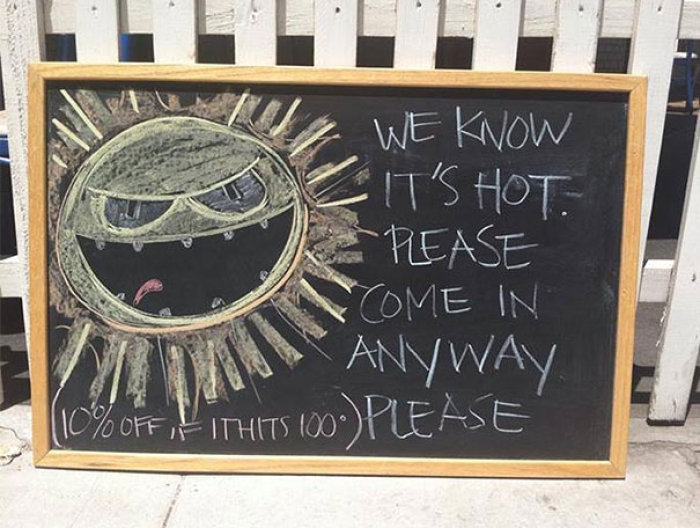 WE KNOW
IT'S HOT.
PLEASE
COME IN
ANYWAY
PLEASE
(10% OFF IF IT HITS 100°)